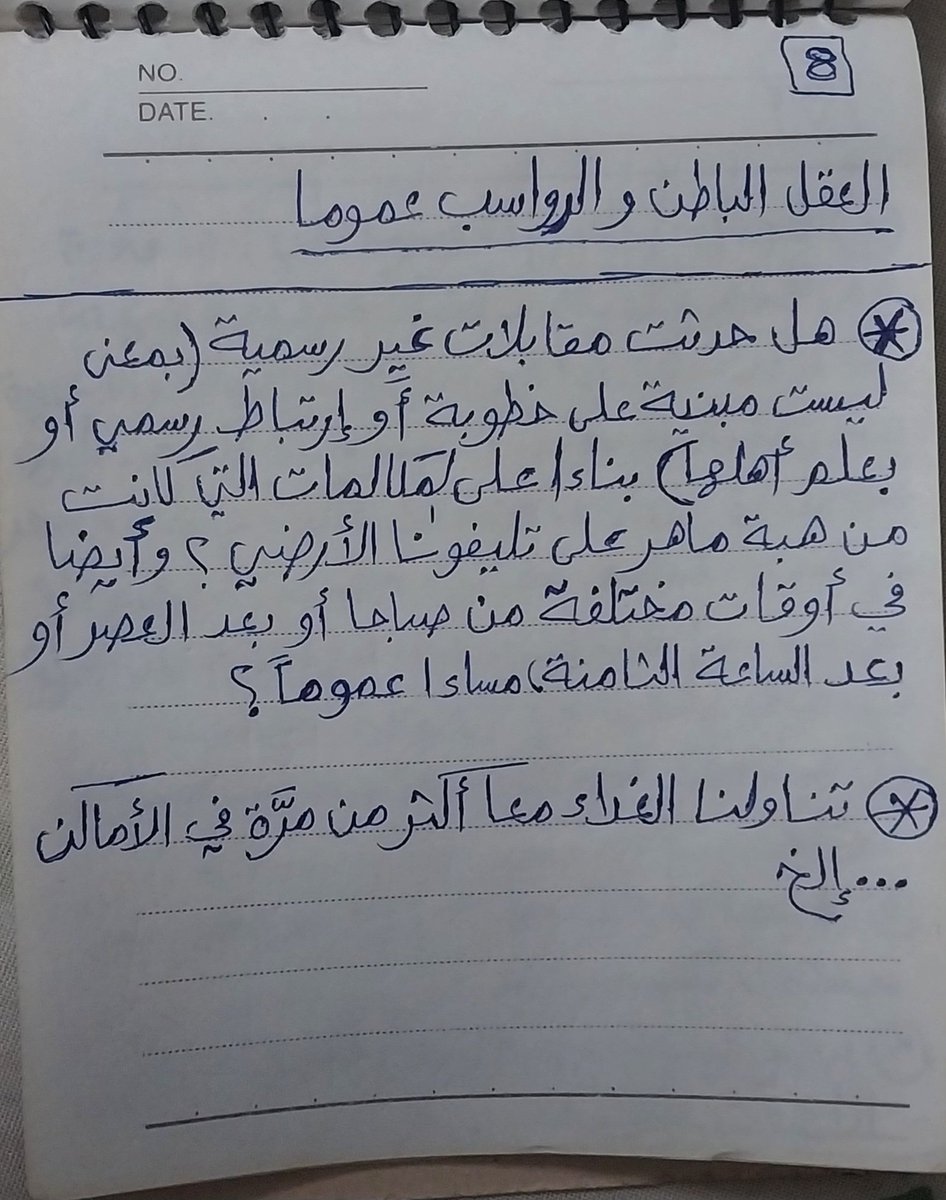 8
NO.
DATE. . .
العقل الباطن و الرواسب عموما
هل حدثت مقابلات غير رسمية (بمعنى
ليست مبنية على خطوبة أو إرتباط رسمي أو
بعلم أهلها) بناءا على المكالمات التي كانت
من هبة ماهر على تليفوننا الأرضي؟ وأيضا
في أوقات مختلفة من صباحا أو بعد العصر أو
بعد الساعة الثامنة مساءا عموماً؟
تناولنا الغداء معا أكثر من مرَّة في الأماكن
... إلخ